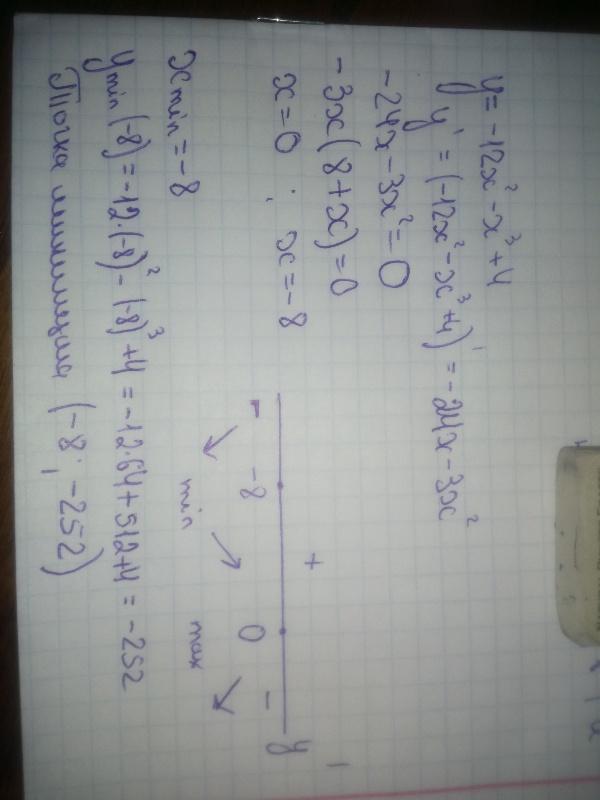 y = -12x² - x³ + 4
y' = (-12x² - x³ + 4)' = -24x - 3x²
-24x - 3x² = 0
-3x(8 + x) = 0
x = 0 ; x = -8
- + - y'
-8 0
min max
x min = -8
y min (-8) = -12·(-8)² - (-8)³ + 4 = -12·64 + 512 + 4 = -252
Точка минимума (-8; -252)